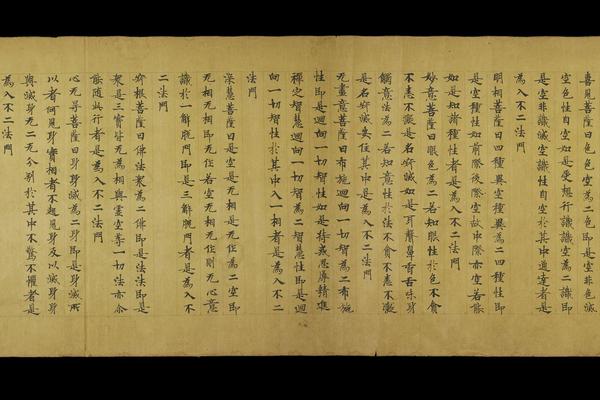 喜見菩薩曰色色空為二色即是空非色滅
空色性自空如是受想行識識空為二識即
是空非識滅空識性自空於其中通達者是
為入不二法門
明相菩薩曰四種異空種異為二四種性即
是空種性如前際後際空故中際亦空若能
如是知諸種性者是為入不二法門
妙意菩薩曰眼色為二若知眼性於色不貪
不恚不癡是名寂滅如是耳聲鼻香舌味身
觸意法為二若知意性於法不貪不恚不癡
是名寂滅安住其中是為入不二法門
无盡意菩薩曰布施迴向一切智為二布施
性即是迴向一切智性如是持戒忍辱精進
禪定智慧迴向一切智為二智慧性即是迴
向一切智性於其中入一相者是為入不二
法門
深慧菩薩曰是空是无相是无作為二空即
无相无相即无作若空无相无作則无心意
識於一解脫門即是三解脫門者是為入不
二法門
寂根菩薩曰佛法眾為二佛即是法法即是
眾是三寶皆无為相與虛空等一切法亦尒
能随此行者是為入不二法門
心无㝵菩薩曰身身滅為二身即是身滅所
以者何見身實相者不起見身及以滅身身
與滅身无二无分别於其中不驚不懼者是
為入不二法門